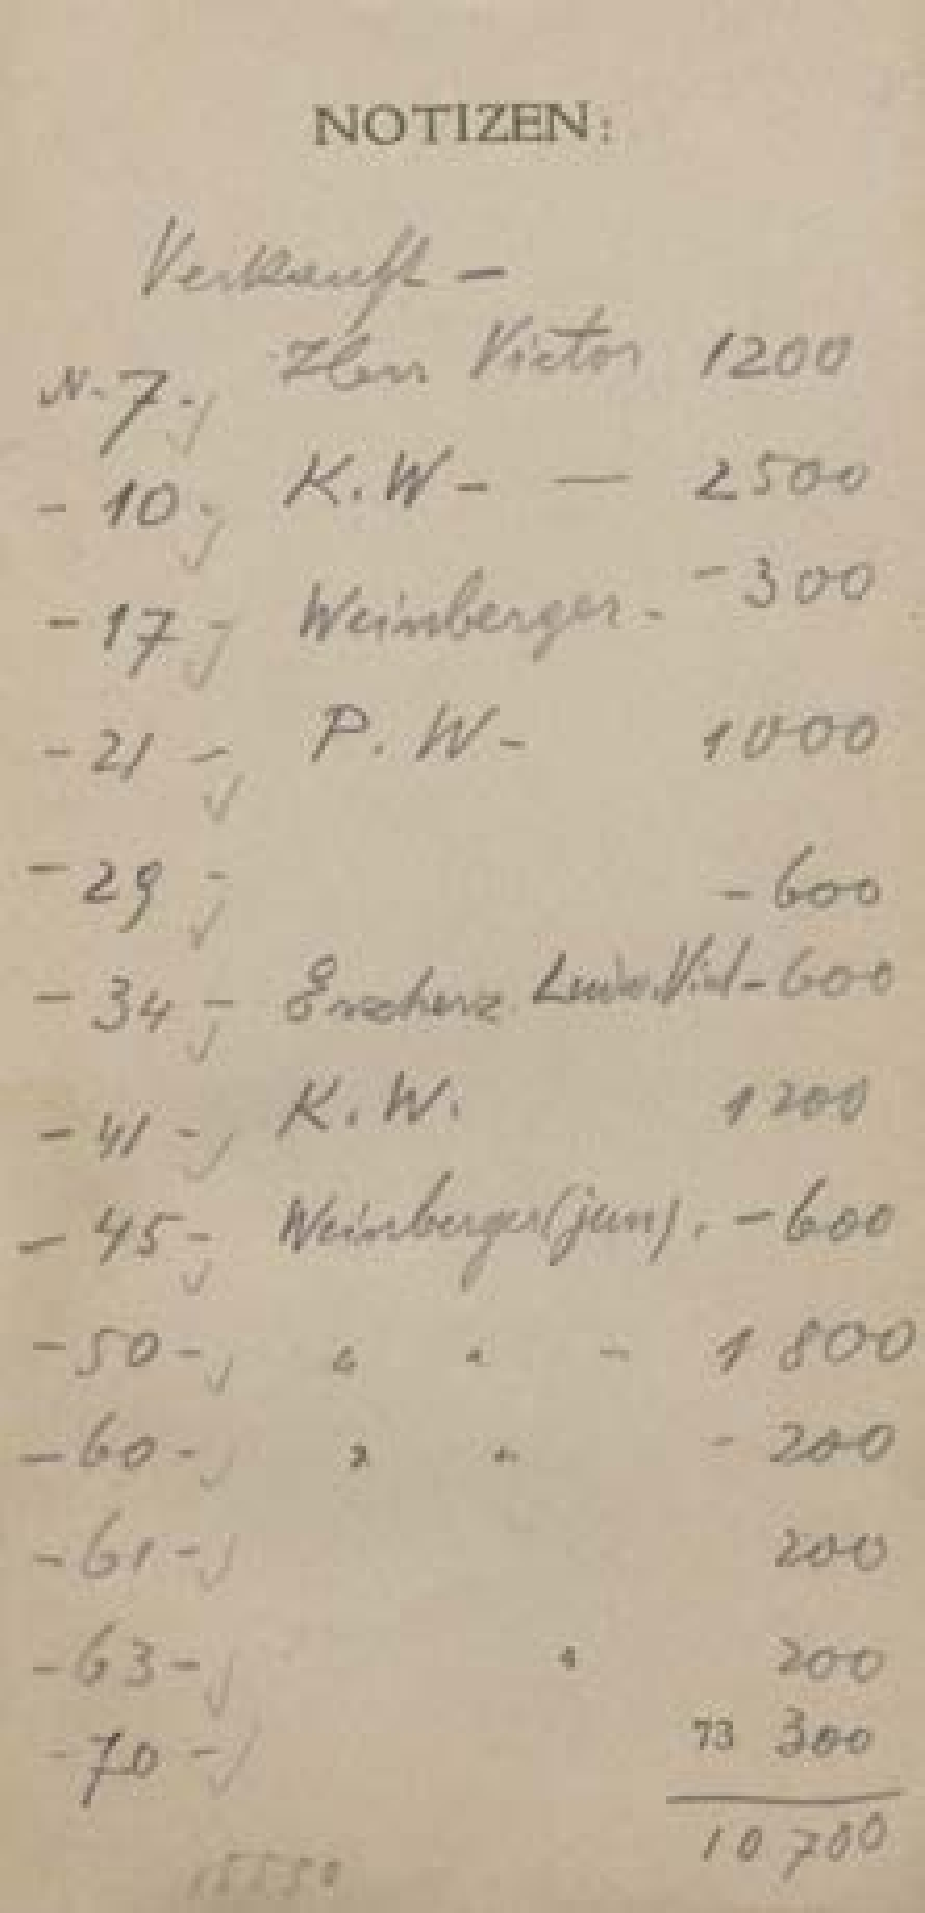 NOTIZEN:
Verkauft —
N. 7 - Herr Victor 1200
- 10 - K. W - — 2500
- 17 - Weinberger - - 300
- 21 - P. W - 1000
- 29 - - 600
- 34 - - 600
- 41 - K. W. 1200
- 45 - Weinberger (jun). - 600
- 50 - " " - 1800
- 60 - " " - 200
- 61 - 200
- 63 - " 200
- 70 - 300
73
10 700